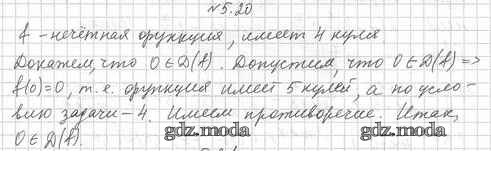 №5.20
f - нечётная функция, имеет 4 нуля.
Докажем, что 0 ∈ D(f). Допустим, что 0 ∈ D(f) =>
f(0)=0, т.е. функция имеет 5 нулей, а по усло-
вию задачи - 4. Имеем противоречие. Итак,
0 ∈ D(f).
gdz.moda gdz.moda